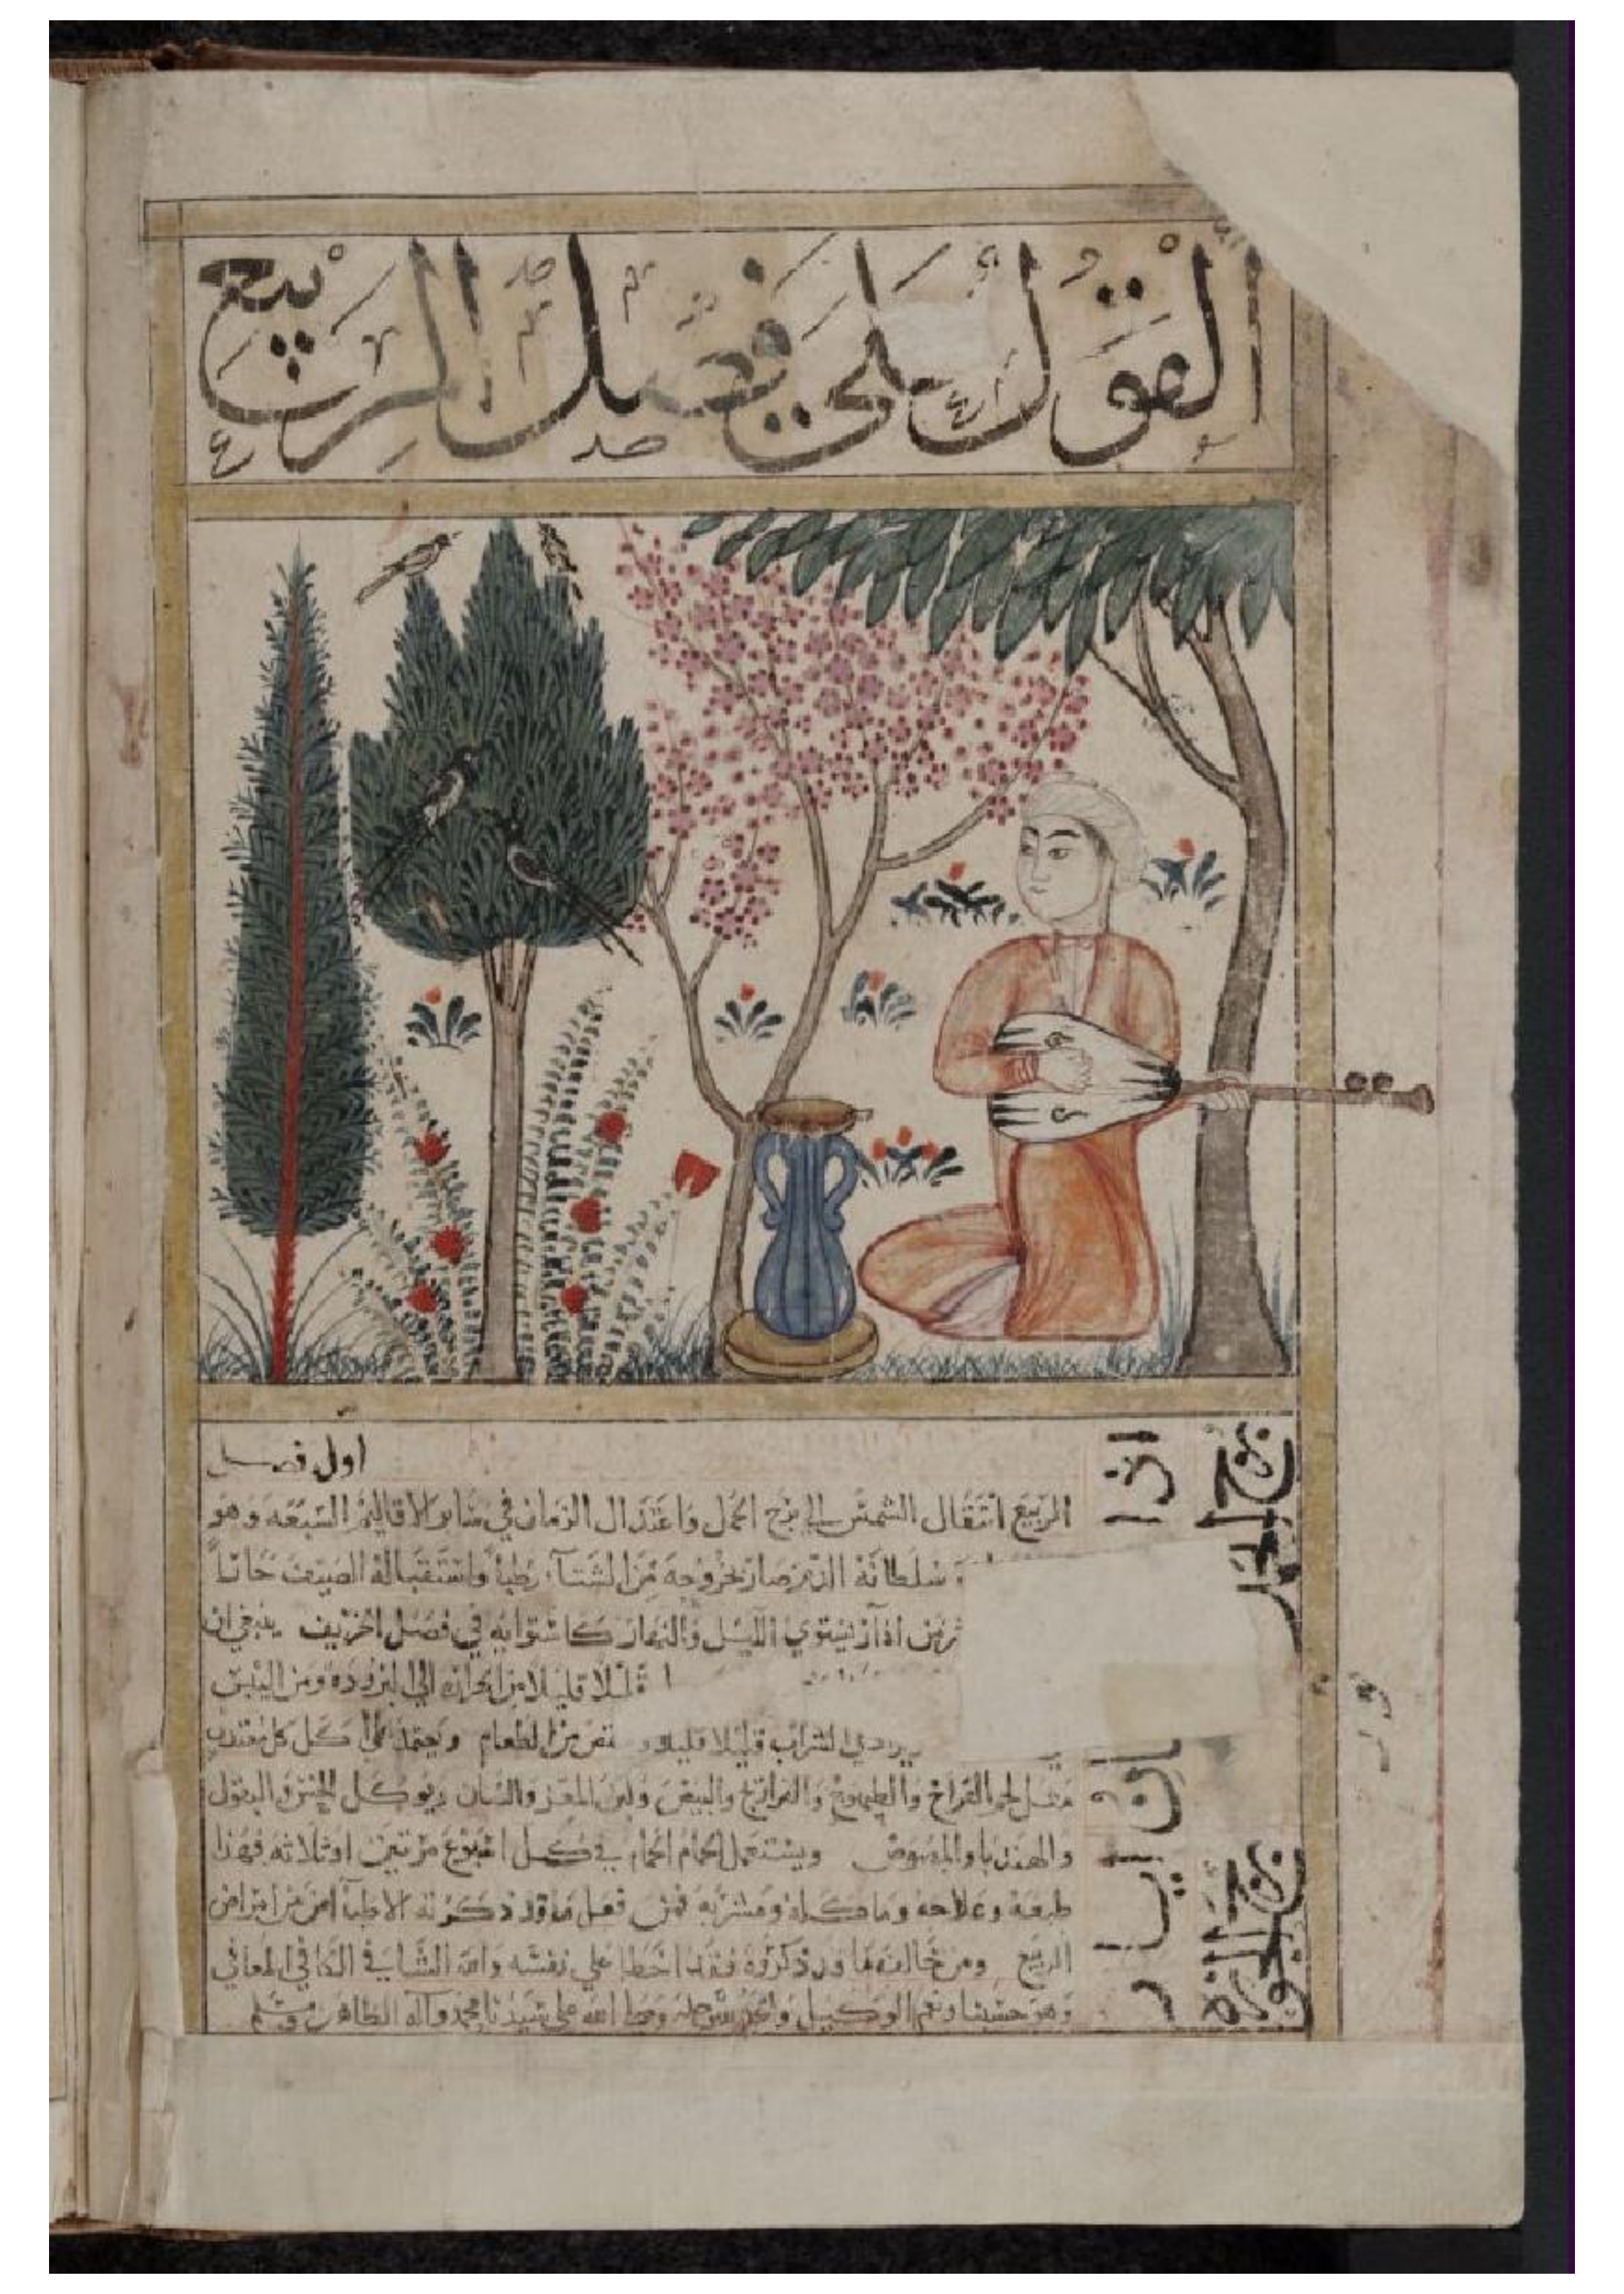 القول على فصل الربيع
اول فصل
الربيع انتقال الشمس الى برج الحمل واعتدال الزمان في سائر الاقاليم السبعه وهو
وسلطانه الدم صار بخروجه من الشتاء رطبا واستقباله الصيف حارا
من اذآر يستوي الليل والنهار كاستوايه في فصل الخريف ينبغي ان
قليلا قليلا من الحراره الي البروده ومن اليبس
الشراب قليلا قليلا و من الطعام ويعتمد على اكل كل معتدل
مثل لحم الفراخ والطيهوج والفراريج والبيض ولبن المعز والضان ويوكل الخس والبقول
والهندبا والمصوص ويستعمل الحمام في كل اسبوع مرتين او ثلاثه فهذا
طبعه وعلاجه وماكله ومشربه فمن فعل ما قد ذكرته الاطبآ امن من امراض
الربيع ومن خالف ما قد ذكروه فقد اخطا على نفسه والله الشافي الكافي المعافي
وهو حسبنا ونعم الوكيل والحمد لله وحده وصلى الله على سيدنا محمد وآله الطاهرين وسلم
اذار
برج الحمل
ايار
برج الجوزه